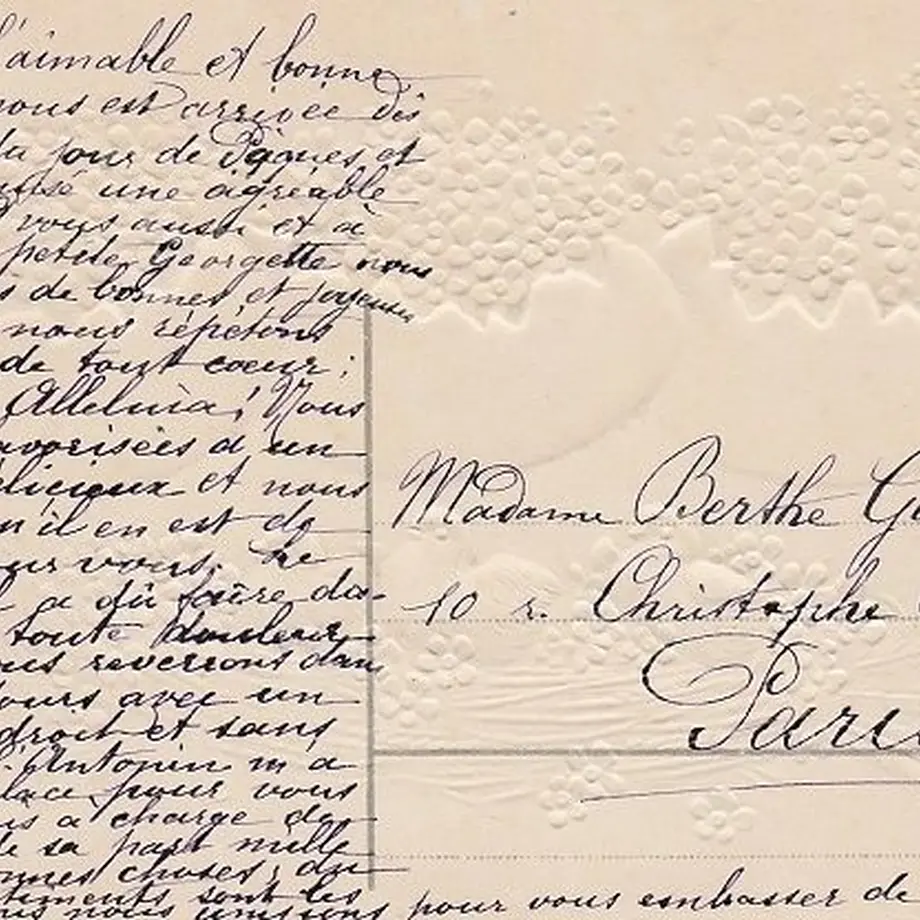 l'aimable et bonne
nous est arrivée dès
du jour de Pâques et
une agréable
vous aussi et à
petite Georgette nous
s de bonnes et joyeuses
nous répétons
de tout coeur :
Alleluia ! Nous
avorisées d'un
élicieux et nous
qu'il en est de
our vous. Le
l a dû faire da-
toute douleur
ous reverrons dans
ours avec un
droit et sans
Antonin m'a
lace pour vous
us a charge de
de sa part mille
onnes choses ; du
timents sont les
us nous unissons pour vous embrasser de
Madame Berthe G
10 r. Christophe
Paris